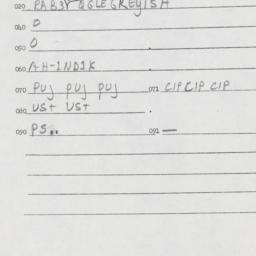 020 PAB3Y QGLE GREYISH
040 0
050 0
060 AH-INDIK
070 PUJ PUJ PUJ 071 CIP CIP CIP
080 UST UST
090 PS.. 092 —